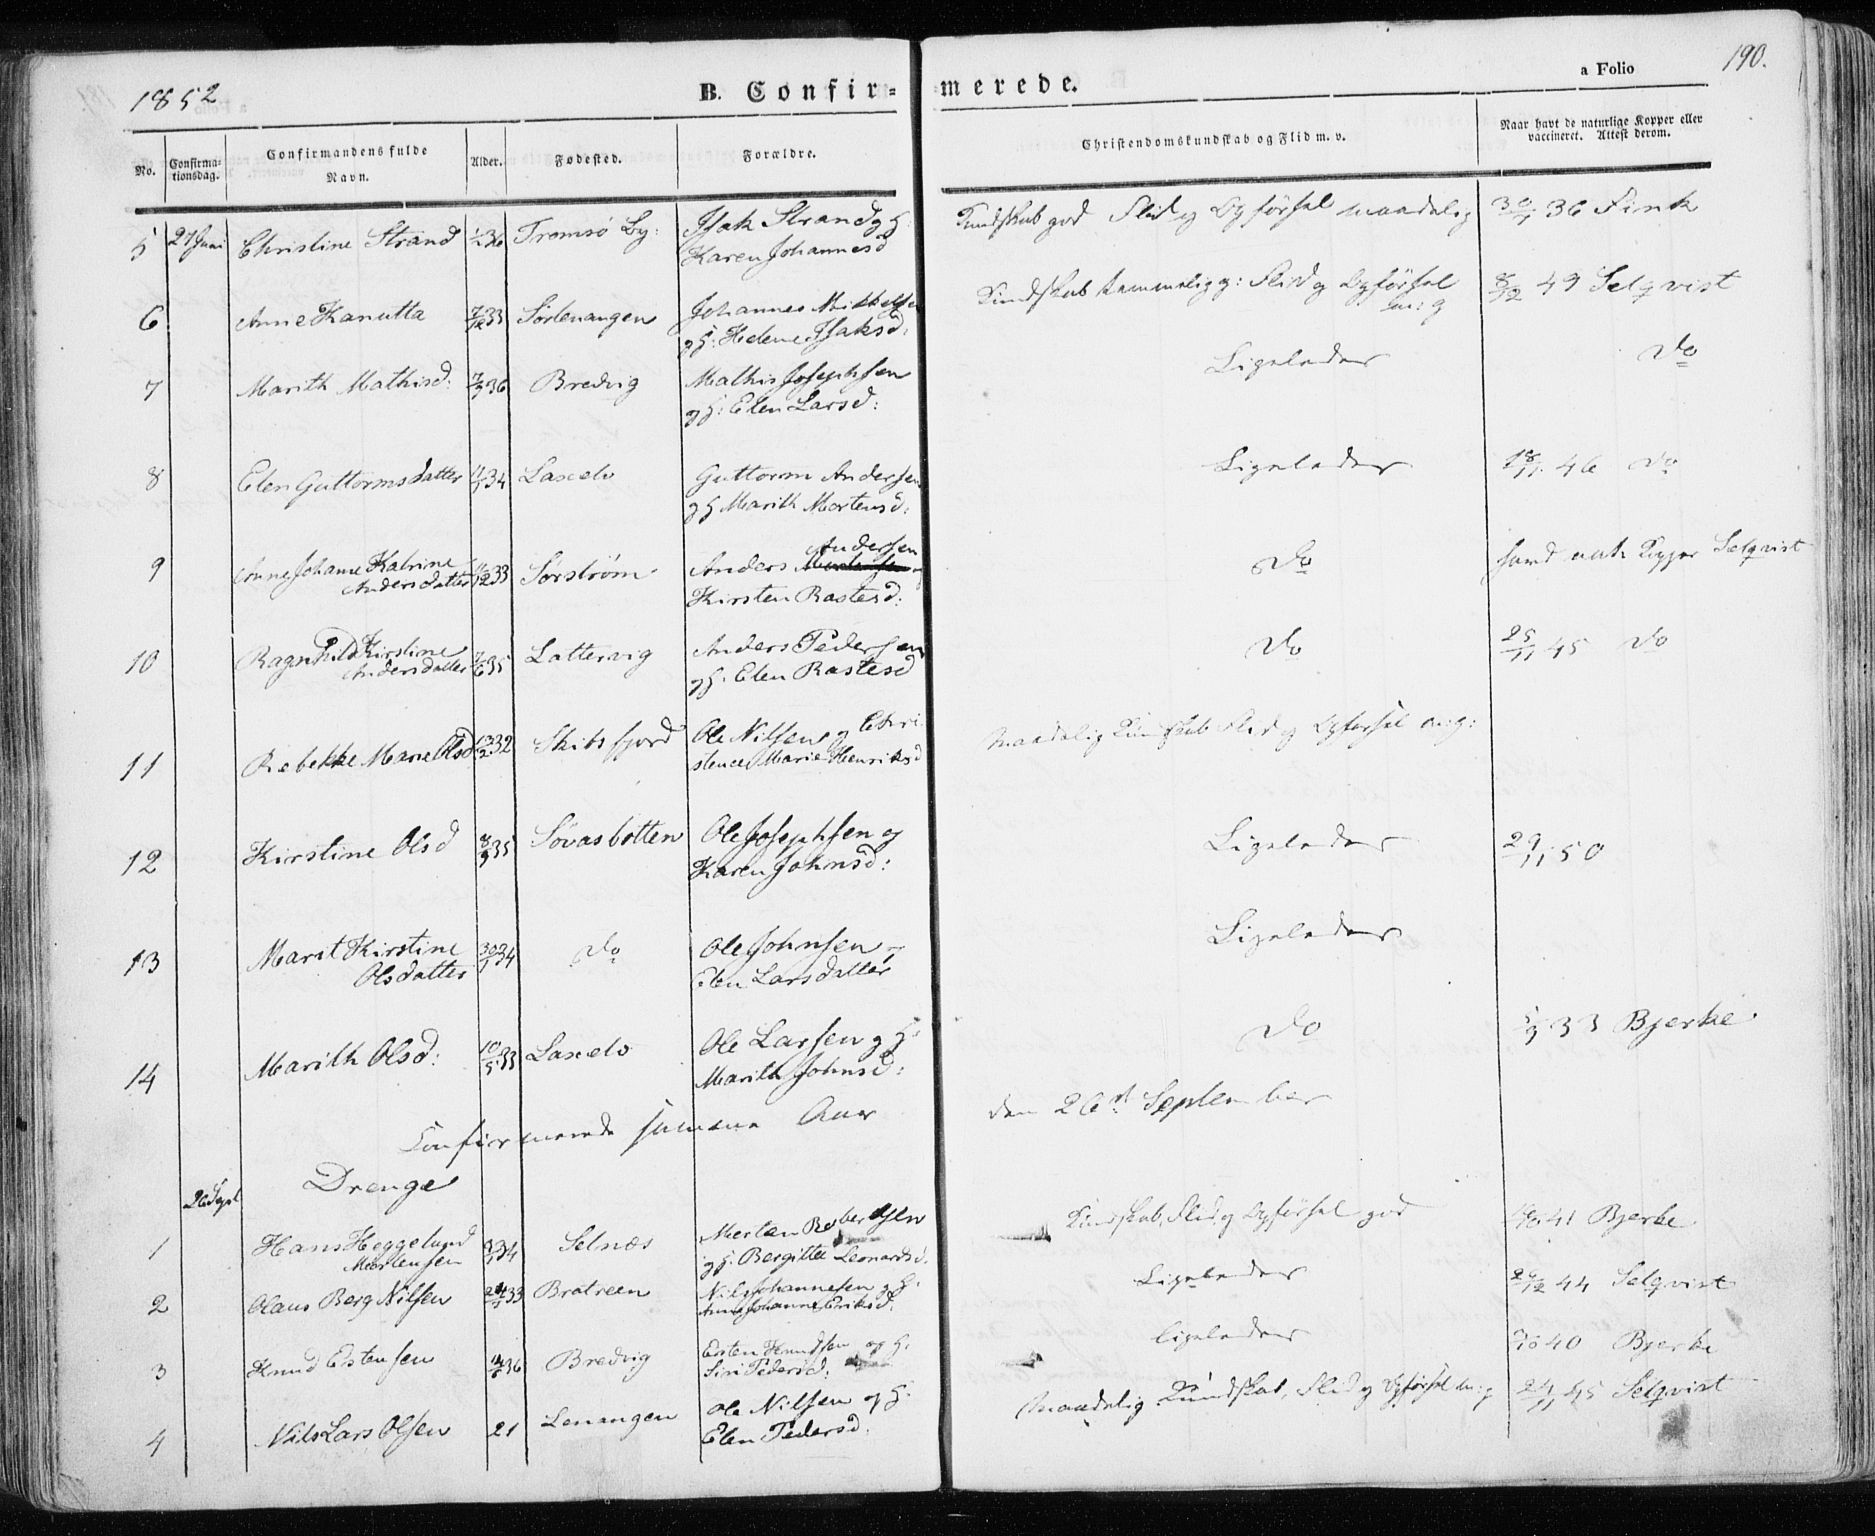 1852
B. Confir=
=merede.
a Folio
190.
No.
Confirma-
tionsdag.
Confirmandens fulde
Navn.
Alder.
Fødested.
Forældre.
Christendomskundskab og Flid m. v.
Naar havt de naturlige Kopper eller
vaccineret. Attest derom.
5 27 Juni Christine Strand Tromsö By: Isak Strand og H:
Karen Johannesd
Kundskab god Flid og Opförsel maadelig 36 Fink
6 Anne Kanutta Sörlenangen Johannes Mikkelsen
og H: Helene Isaksd:
Kundskab temmelig g: Flid og Opförsel
m: g
8/12 49 Selqvist
7 Marith Mathisd: 36 Bredvig Mathis Josephsen
og H: Elen Larsd:
Ligeledes Do
8 Elen Guttormsdatter 34 Laxelv Guttorm Andersen
og H Marith Mortensd:
Ligeledes 18/11 46 Do
9 Anne Johanne Katrine
Andersdatter 33 Sorstrøm Anders Andersen
Kirsten Rastesd:
Do havd nat: Kopper Selqvist
10 Ragnhild Kirstine
Andersdatter 7/6 35 Lattervig Anders Pedersen
og H: Elen Rastesd
Do 25/11 45 Do
11 Rebekke Marie Olsd 32 Skibsfjord Ole Nilsen og Chri
stence Marie Henriksd
Maadelig Kundskab Flid og Opförsel m: g:
12 Kirstine Olsd 8/9 35 Sövasbotten Ole Josephsen og
Karen Johnsd:
Ligeledes 29/11 50
13 Marit Kirstine
Olsdatter 34 Do Ole Johnsen og
Elen Larsdatter
Ligeledes
14 Marith Olsd: 10/5 33 Laxelv Ole Larsen og H:
Marith Johnsd:
Do 33 Bjerke
Confirmerede samme Aar den 26d September
26 Sept Drenge
1 Hans Heggelund
Mortensen 34 Selnæs Morten Robertsen
og H: Bergitte Leonardsd.
Kundskab, Flid og Opförsel god 41 Bjerke
2 Olaus Berg Nilsen 33 Bratreen Nils Johannesen og H:
Anne Johanne Eriksd:
Ligeledes 29/12 44 Selqvist
3 Knud Estensen 36 Bredvig Esten Knudsen og H:
Siri Pedersd:
ligeledes 40 Bjerke
4 Nils Lars Olsen 21 Lenangen Ole Nilsen og H:
Elen Pedersd.
Maadelig Kundskab, Flid og Opförsel m: g 24/11 45 Selqvist